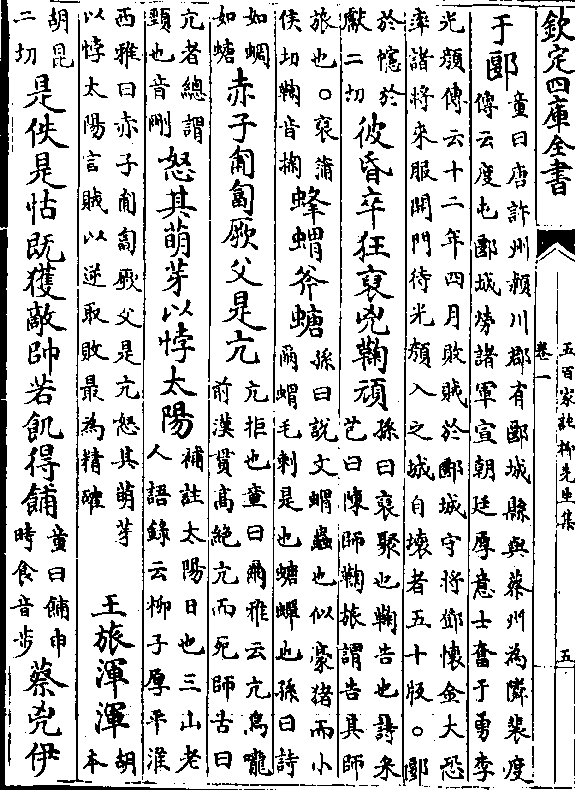 欽定四庫全書
五百家註柳先生集
卷一
五
于郾
童曰唐許州潁川郡有郾城縣與蔡州為隣裴度
傳云度屯郾城勞諸軍宣朝廷厚意士奮于勇李
光顔傳云十二年四月敗賊於郾城守將鄧懷金大恐
率諸將來服開門待光顔入之城自壞者五十版。郾
於幰於
獻二切
彼昏卒狂裒兇鞠頑
孫曰裒聚也鞠告也詩釆
芑曰陳師鞠旅謂告其師
旅也。裒蒲
侯切鞠音掬
蜂蝟斧螗
孫曰說文蝟蟲也似豪猪而小
爾蝟毛刺是也螗蟬也孫曰詩
如蜩
如螗
赤子匍匐厥父是亢
亢拒也童曰爾雅云亢鳥嚨
前漢貫高絶亢而死師古曰
亢者總謂
頸也音剛
怒其萌芽以悖太陽
補註太陽日也三山老
人語錄云栁子厚平淮
西雅曰赤子匍匐厥父是亢怒其萌芽
以悖太陽言賊以逆取敗最為精確
王旅渾渾
胡
本
胡昆
二切
是佚是怙既獲敵帥若飢得餔
童曰餔申
時食音步
蔡兇伊